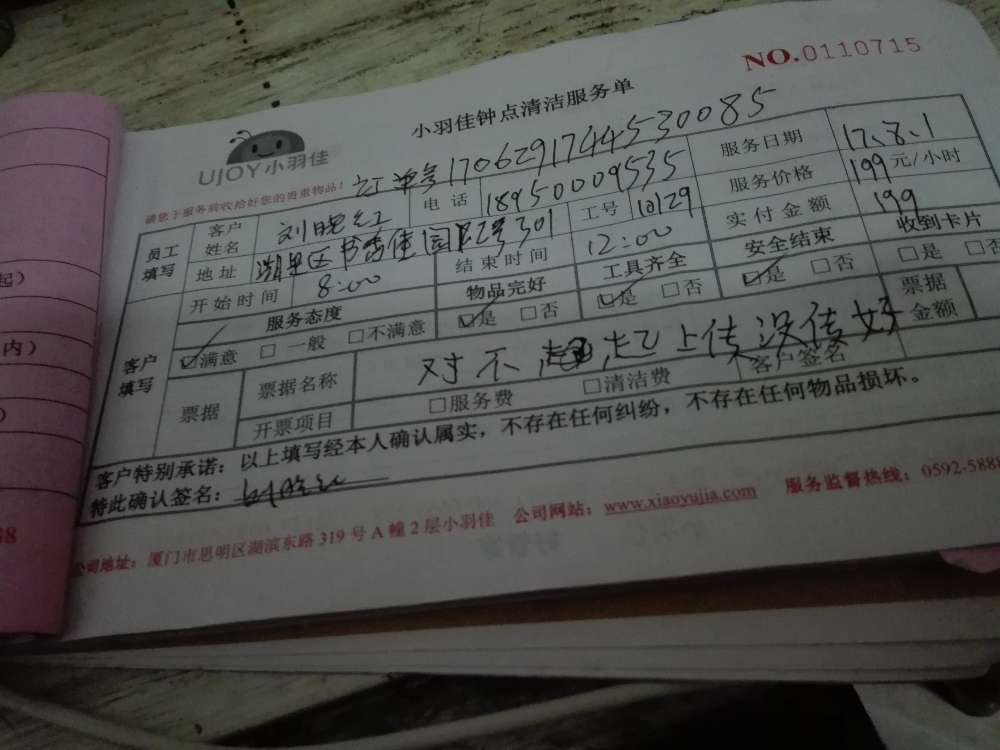 NO.0110715
小羽佳钟点清洁服务单
UJOY小羽佳
请您于服务前收给好您的贵重物品！
订单号17062917444530085
员工填写 客户姓名 刘晓红 电话 18950009535 服务日期 17.8.1
地址 湖里区书香佳园 2号301 工号 10129 服务价格 199元/小时
开始时间 8:00 结束时间 12:00 实付金额 199
客户填写 服务态度 物品完好 工具齐全 安全结束 收到卡片
☑满意 □一般 □不满意 ☑是 □否 ☑是 □否 ☑是 □否 □是 □否
票据 票据名称 对不起上传没传好 票据金额
开票项目 □服务费 □清洁费 客户签名
客户特别承诺：以上填写经本人确认属实，不存在任何纠纷，不存在任何物品损坏。
特此确认签名：刘晓红
公司地址：厦门市思明区湖滨东路319号A幢2层小羽佳 公司网站：www.xiaoyujia.com 服务监督热线：0592-5888
起）
内）